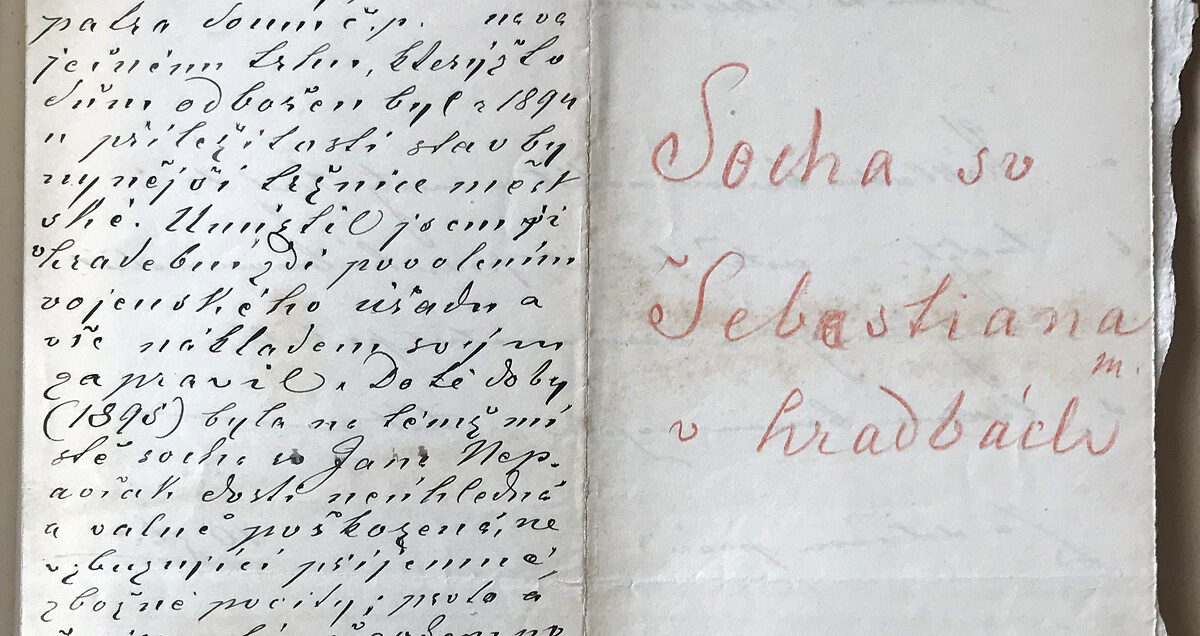 patra domu č.p. na va
ječném trhu, kterýžto
dům odbořen byl r 1894
u příležitosti stavby
nynější tržnice měst
ské. Umístil jsem ji
v hradební zdi povolením
vojenského úřadu a
vše nákladem svým
zapravil. Do té doby
(1895) byla na témž mí
stě socha sv Jana Nep.
avšak dosti neúhledná
a valně poškozená, ne
vzbuzující příjemné,
zbožné pocity; proto a
Socha sv
Šebestiana
m.
v hradbách